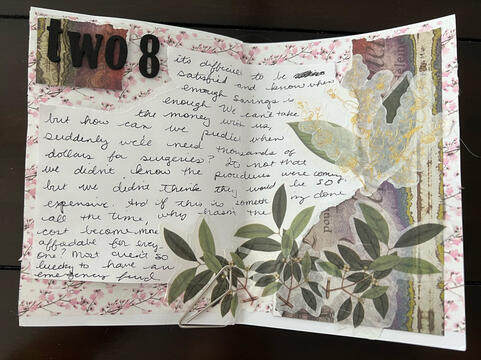 two 8
its difficult to be
satisfied and know when
enough savings is
enough. We can't take
the money with us,
but how can we predict when
suddenly we'll need thousands of
dollars for surgeries? Its not that
we didn't know the procedures were coming,
but we didn't think they would be SO
expensive. And if this is something done
all the time, why hasn't the
cost become more
affordable for every-
one? Most aren't SO
lucky to have an
emergency fund.